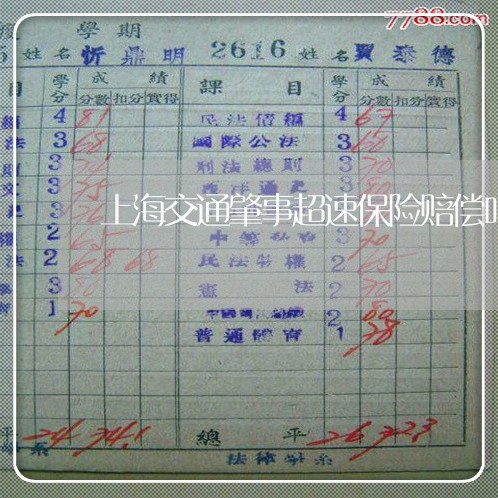 7788.com
學期
姓名 忻鼎明 2616 姓名 賈泰德
目 學分 成績 課目 學分 成績
分數 扣分 實得 分數 扣分 實得
4 81 民法債編 4 67
法 3 68 國際公法 3 60
則 3 刑法總則 3 70
3 75 西洋通史 3 80
上海交通肇事超速保险赔偿
2 65 3 70
法 2 68 68 民法物權 2 65
3 80 憲法 2 70
1 70 2 80
普通體育 1 78
平 24 74.1 總平 26 72.3
系 法律學系